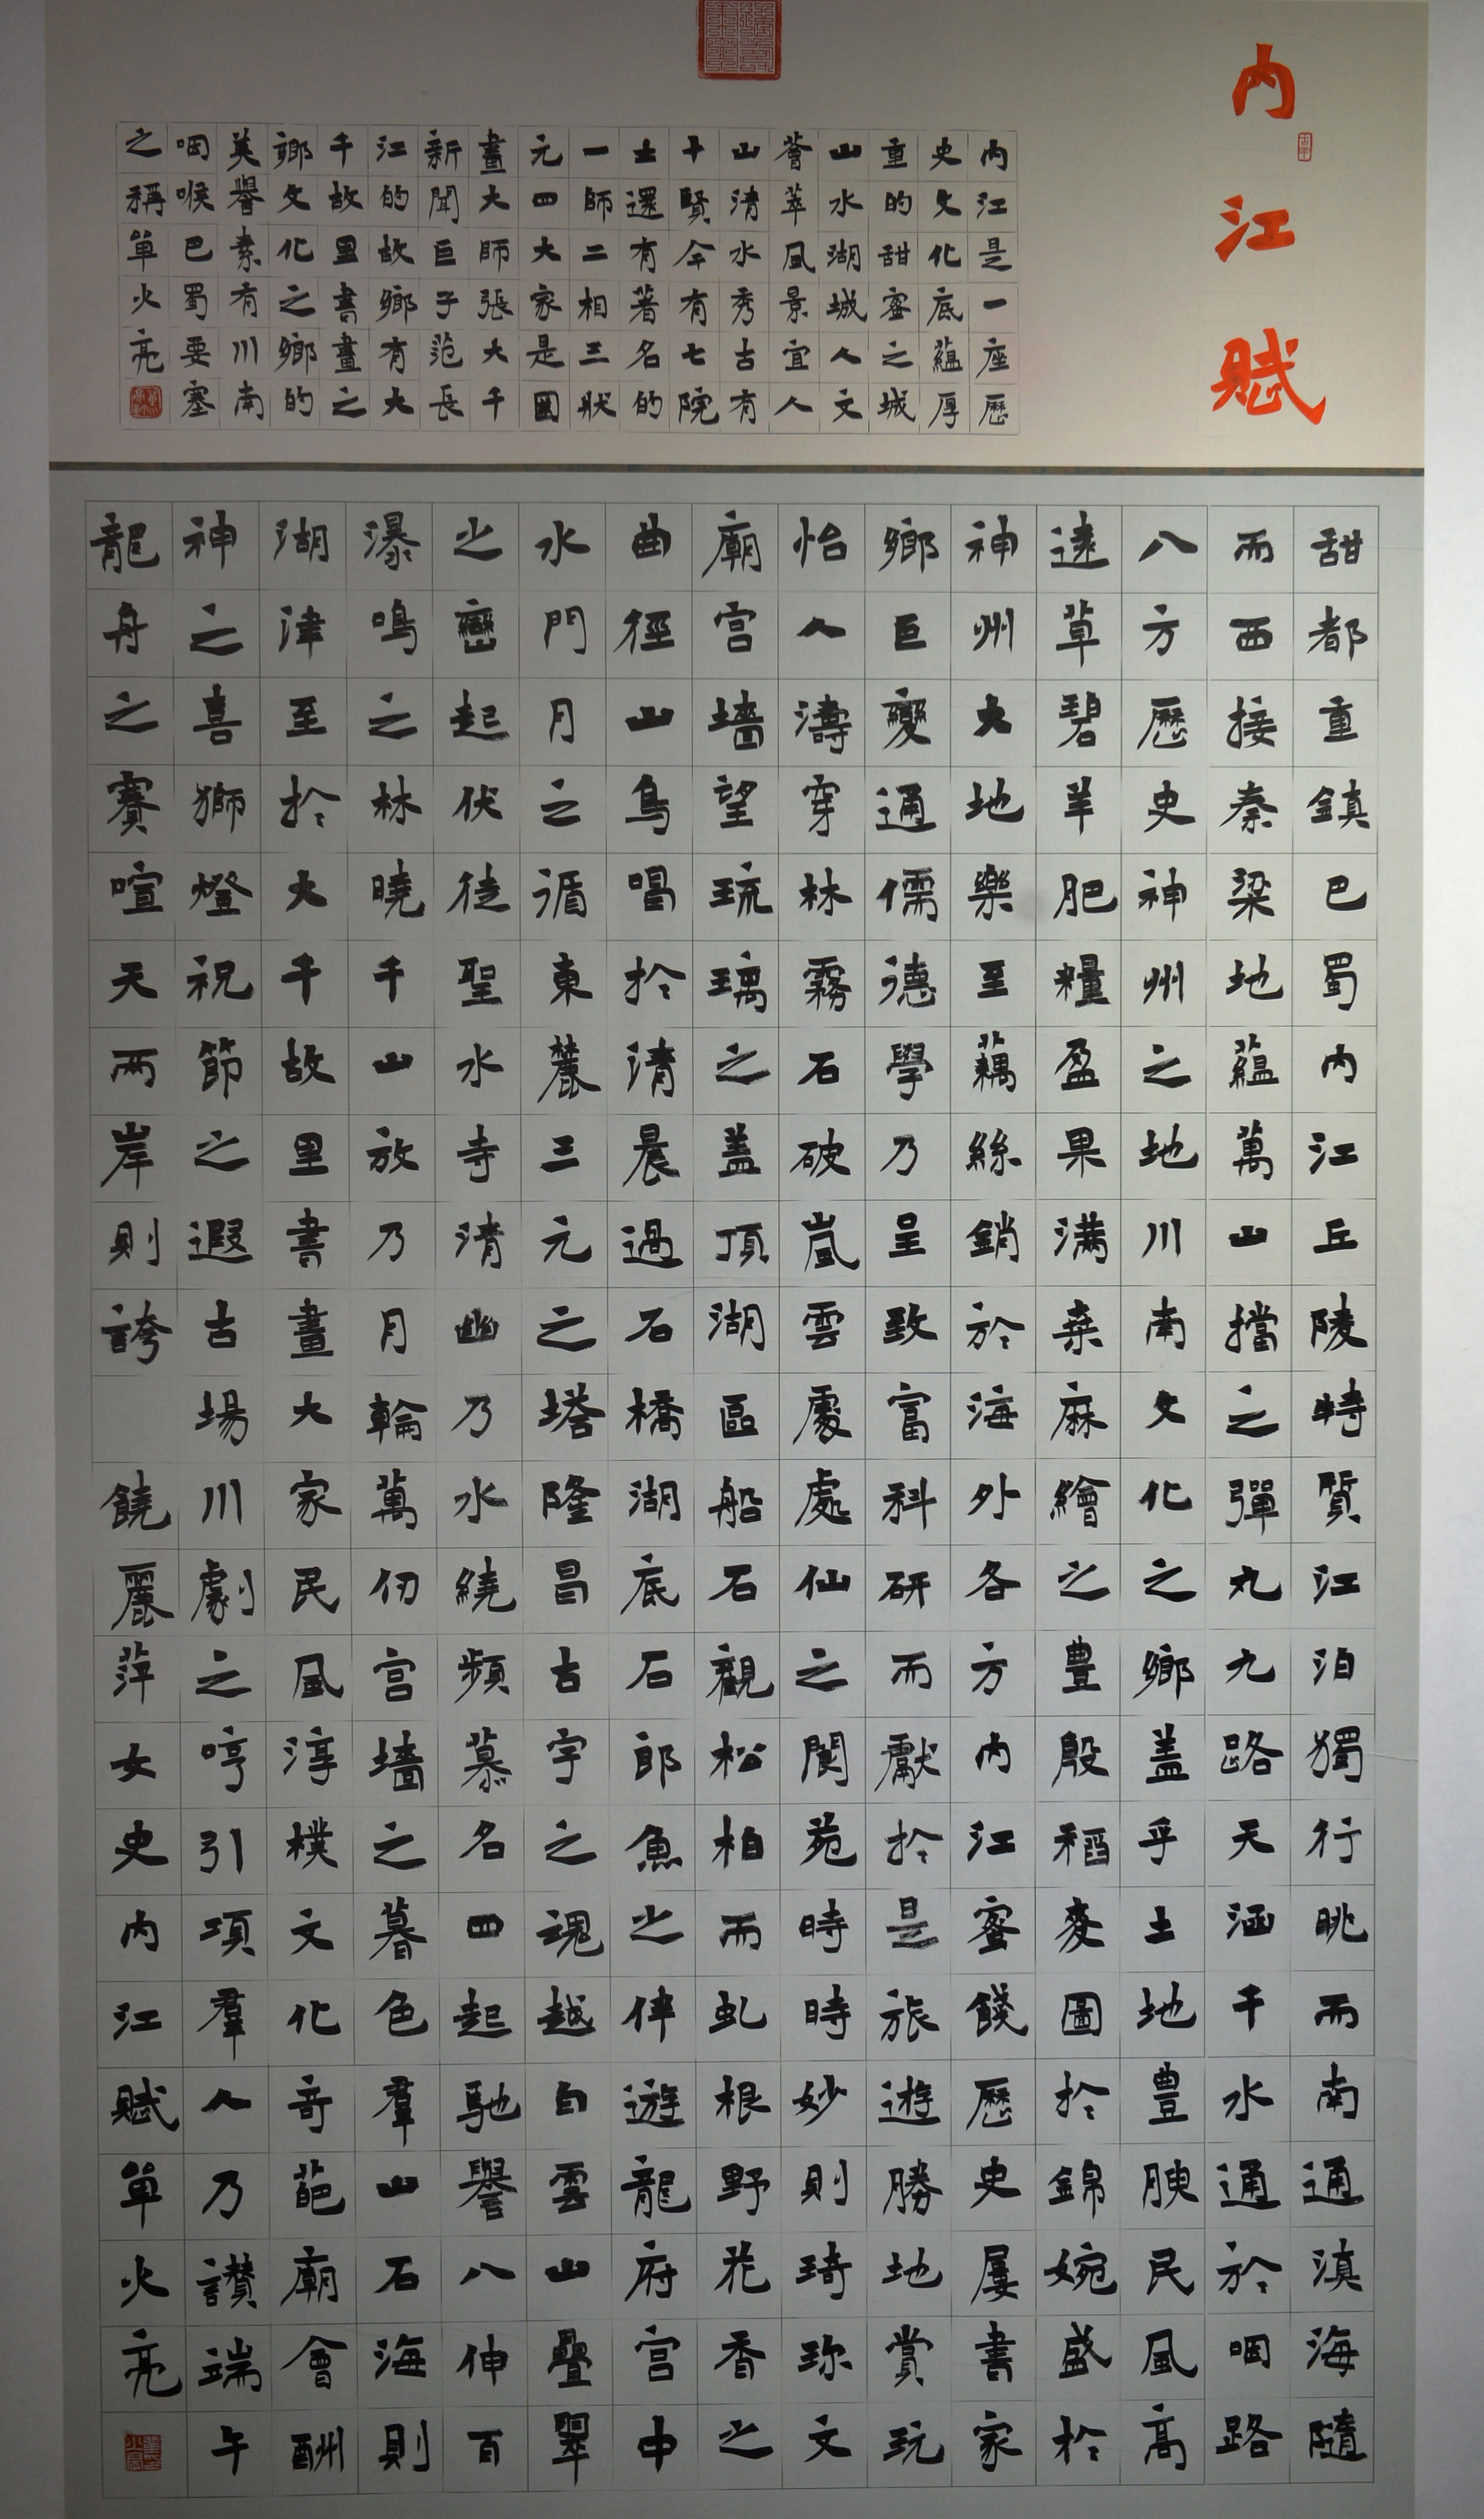 内江賦
内江是一座歷
史文化底蘊厚
重的甜蜜之城
山水湖城人文
薈萃風景宜人
山清水秀古有
十賢今有七院
士還有著名的
一師二相三狀
元四大家是國
畫大師張大千
新聞巨子范長
江的故鄉有大
千故里書畫之
鄉文化之鄉的
美譽素有川南
咽喉巴蜀要塞
之稱單火亮
甜都重鎮巴蜀内江丘陵特質江泊獨行眺而南通滇海隨
而西接秦梁地蘊萬山擋之彈丸九路天涵千水通於咽路
八方歷史神州之地川南文化之鄉盖乎土地豊腴民風高
遠草碧羊肥糧盈果滿桒麻繪之豊殷稻麥圖於錦婉盛於
神州大地樂至藕絲銷於海外各方内江蜜餞歷史屢書家
鄉巨變通儒德學乃呈致富科研而獻於是旅遊勝地賞玩
怡人濤穿林霧石破嵐雲處處仙之閬苑時時妙則琦珎文
廟宫墻望琉璃之盖頂湖區船石觀松柏而虬根野花香之
曲徑山鳥唱於清晨過石橋湖底石郎魚之伴遊龍府宫中
水門月之循東麓三元之塔隆昌古宇之魂越白雲山疊翠
之巒起伏徒聖水寺清幽乃水繞頻慕名四起馳譽八伸百
瀑鳴之林曉千山放乃月輪萬仞宫墻之暮色羣山石海則
湖津至於大千故里書畫大家民風淳樸文化奇葩廟會酬
神之喜獅燈祝節之遐古場川劇之哼引項羣人乃讚端午
龍舟之賽喧天兩岸則誇 饒麗萍女史内江賦單火亮